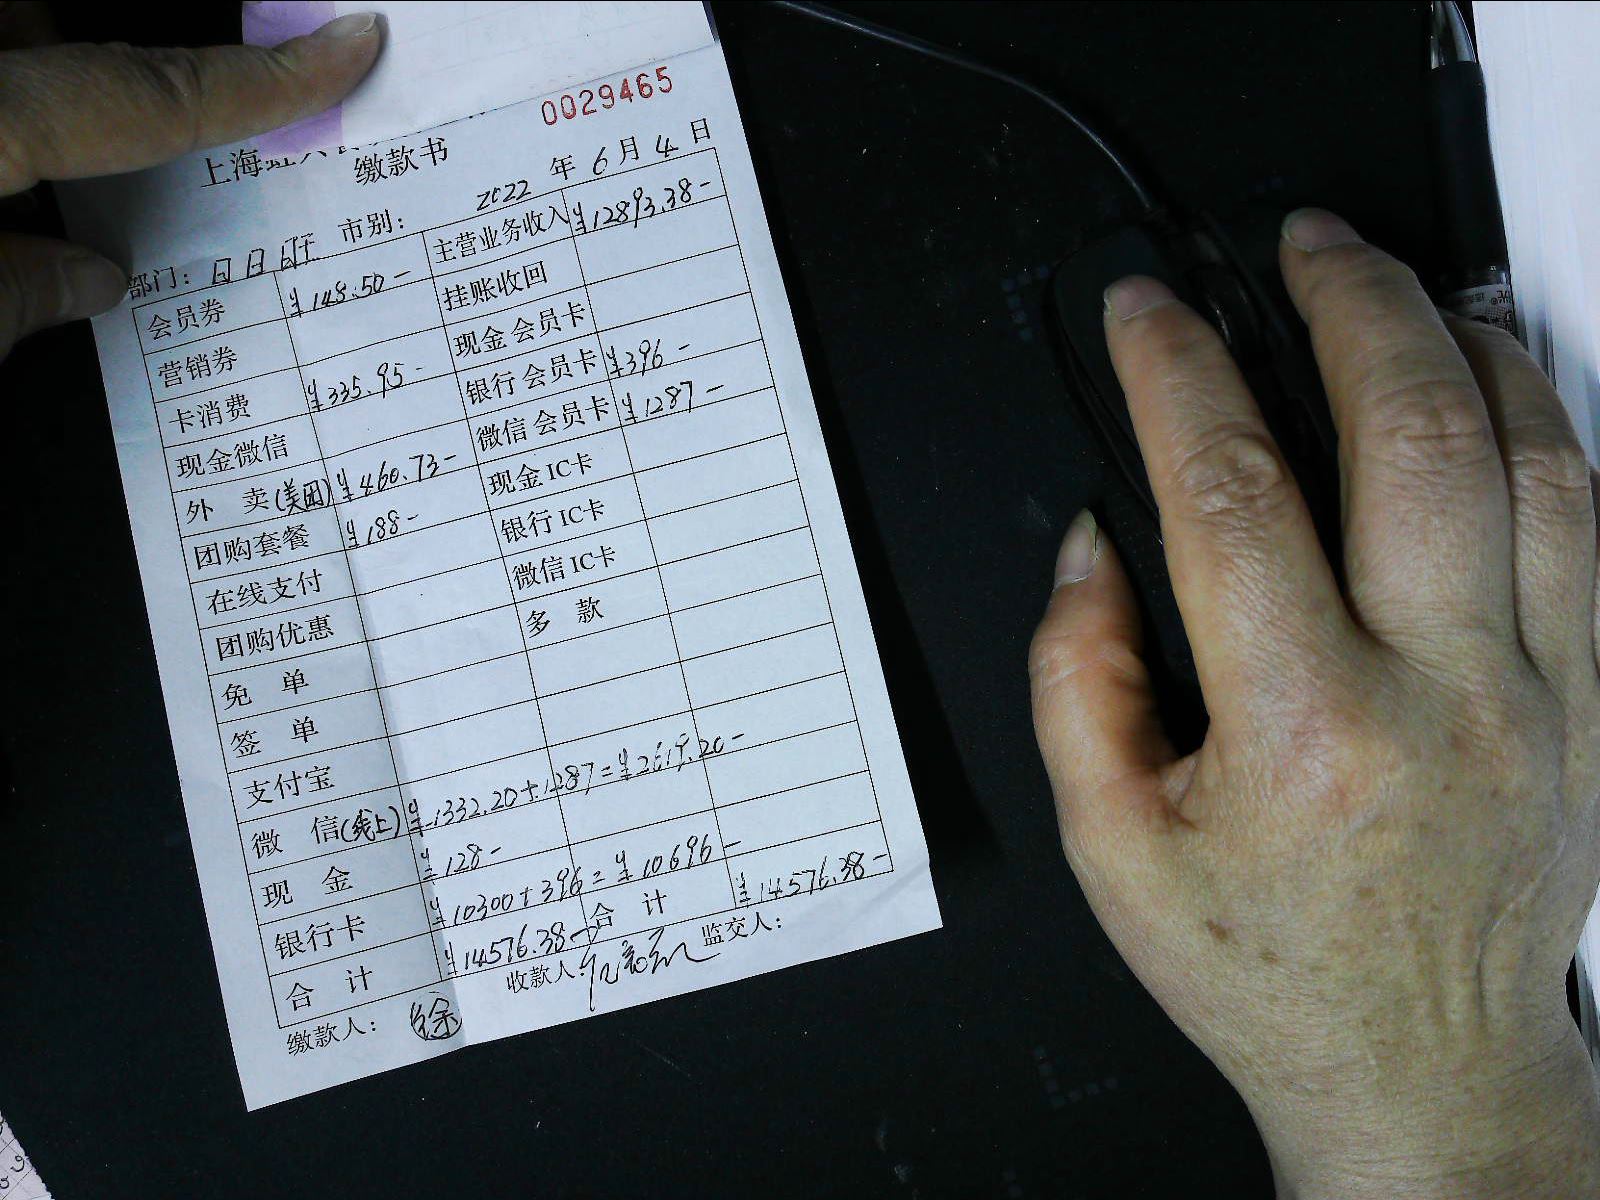 0029465
上海
缴款书
2022 年 6 月 4 日
部门：日日昕 市别：
会员券 ¥148.50- 主营业务收入 ¥12893.38-
营销券 挂账收回
卡消费 ¥335.95- 现金会员卡
现金微信 银行会员卡 ¥396-
外 卖(美团) ¥460.73- 微信会员卡 ¥1287-
团购套餐 ¥188- 现金IC卡
在线支付 银行IC卡
团购优惠 微信IC卡
免 单 多 款
签 单
支付宝
微 信(线上) ¥1332.20+1287=¥2619.20-
现 金 ¥128-
银行卡 ¥10300+396=¥10696-
合 计 ¥14576.38- 合 计 ¥14576.38-
缴款人： 徐 收款人： 监交人：